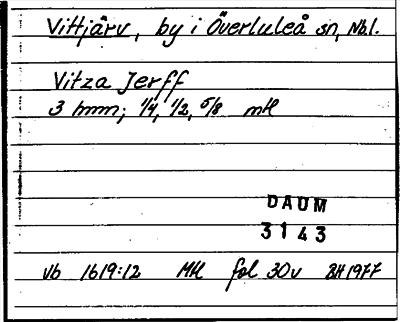 Vittjärv, by i Överluleå sn, Nbl.
Vitza Jerff
3 hmm; 1/4, 1/2, 5/8 mtl
DAUM
3143
Vb 1619:12 Mtl fol 30v BH 1977